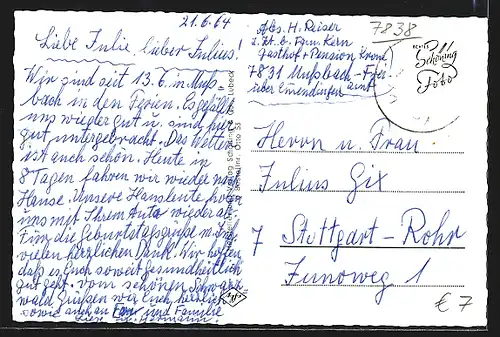 21.6.64
Liebe Julie, lieber Julius!
Wir sind seit 13.6. in Muß-
bach in den Ferien. Es gefällt
uns wieder gut u. sind hier
gut untergebracht. Das Wetter
ist auch schön. Heute in
8 Tagen fahren wir wieder nach
Hause. Unsere Hausleute holen
uns mit Ihrem Auto wieder ab.
Für die Geburtstagsgrüße m. Sch.
vielen herzlichen Dank! Wir hoffen
daß es Euch soweit gesundheitlich
gut geht. Vom schönen Schwarz-
wald Grüßen wir Euch herzlich
sowie auch an und Familie
Hermann.
Abs. H. Reiser
z. Zt. b. Fam. Kern
Gasthof + Pension Krone
7831 Mußbach-
über Emmendingen
7838
Schöning
Foto
Herrn u. Frau
Julius Gix
7 Stuttgart-Rohr
Junoweg 1
€ 7